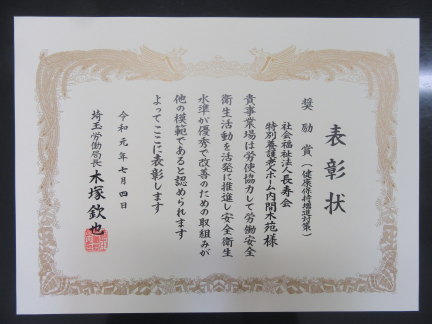 表彰状
奨励賞(健康保持増進対策)
社会福祉法人長寿会
特別養護老人ホーム内間木苑様
貴事業場は労使協力して労働安全
衛生活動を活発に推進し安全衛生
水準が優秀で改善のための取組みが
他の模範であると認められます
よってここに表彰します
令和元年七月四日
埼玉労働局長 木塚欽也